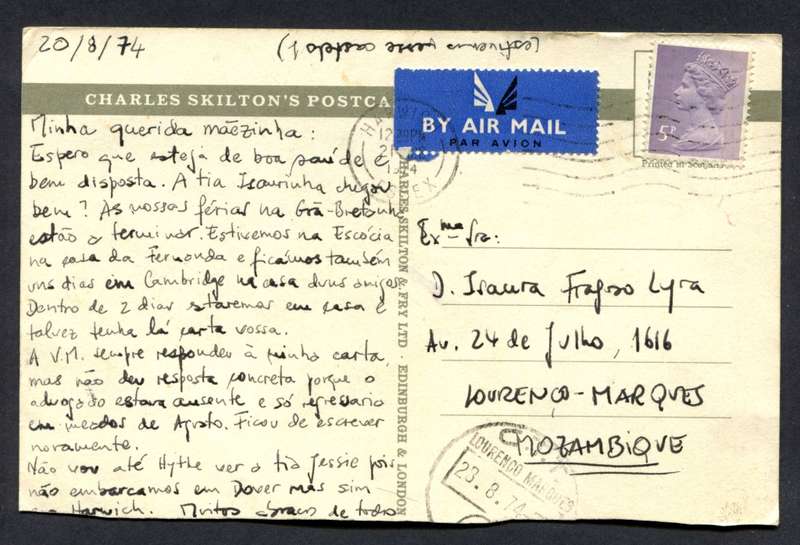 20/8/74
(estivemos nesse castelo!)
CHARLES SKILTON'S POSTCA
Minha querida mãezinha:
Espero que esteja de boa saúde e
bem disposta. A tia Isaurinha chegou
bem? As nossas férias na Grã-Bretanha
estão a terminar. Estivemos na Escócia
na casa da Fernanda e ficámos também
uns dias em Cambridge na casa duns amigos.
Dentro de 2 dias estaremos em casa e
talvez tenha lá carta vossa.
A V.M. sempre respondeu à minha carta,
mas não deu resposta concreta porque o
advogado estava ausente e só regressaria
em meados de Agosto. Ficou de escrever
novamente.
Não vou até Hythe ver a tia Jessie pois
não embarcamos em Dover mas sim
em Harwich. Muitos abraços de todos
CHARLES SKILTON & FRY LTD · EDINBURGH & LONDON
BY AIR MAIL
PAR AVION
5P
Printed in Scotland
1974
Exma Sra:
D. Isaura Fragoso Lyra
Av. 24 de Julho, 1616
LOURENÇO-MARQUES
MOZAMBIQUE
LOURENCO MARQUES
23.8.74